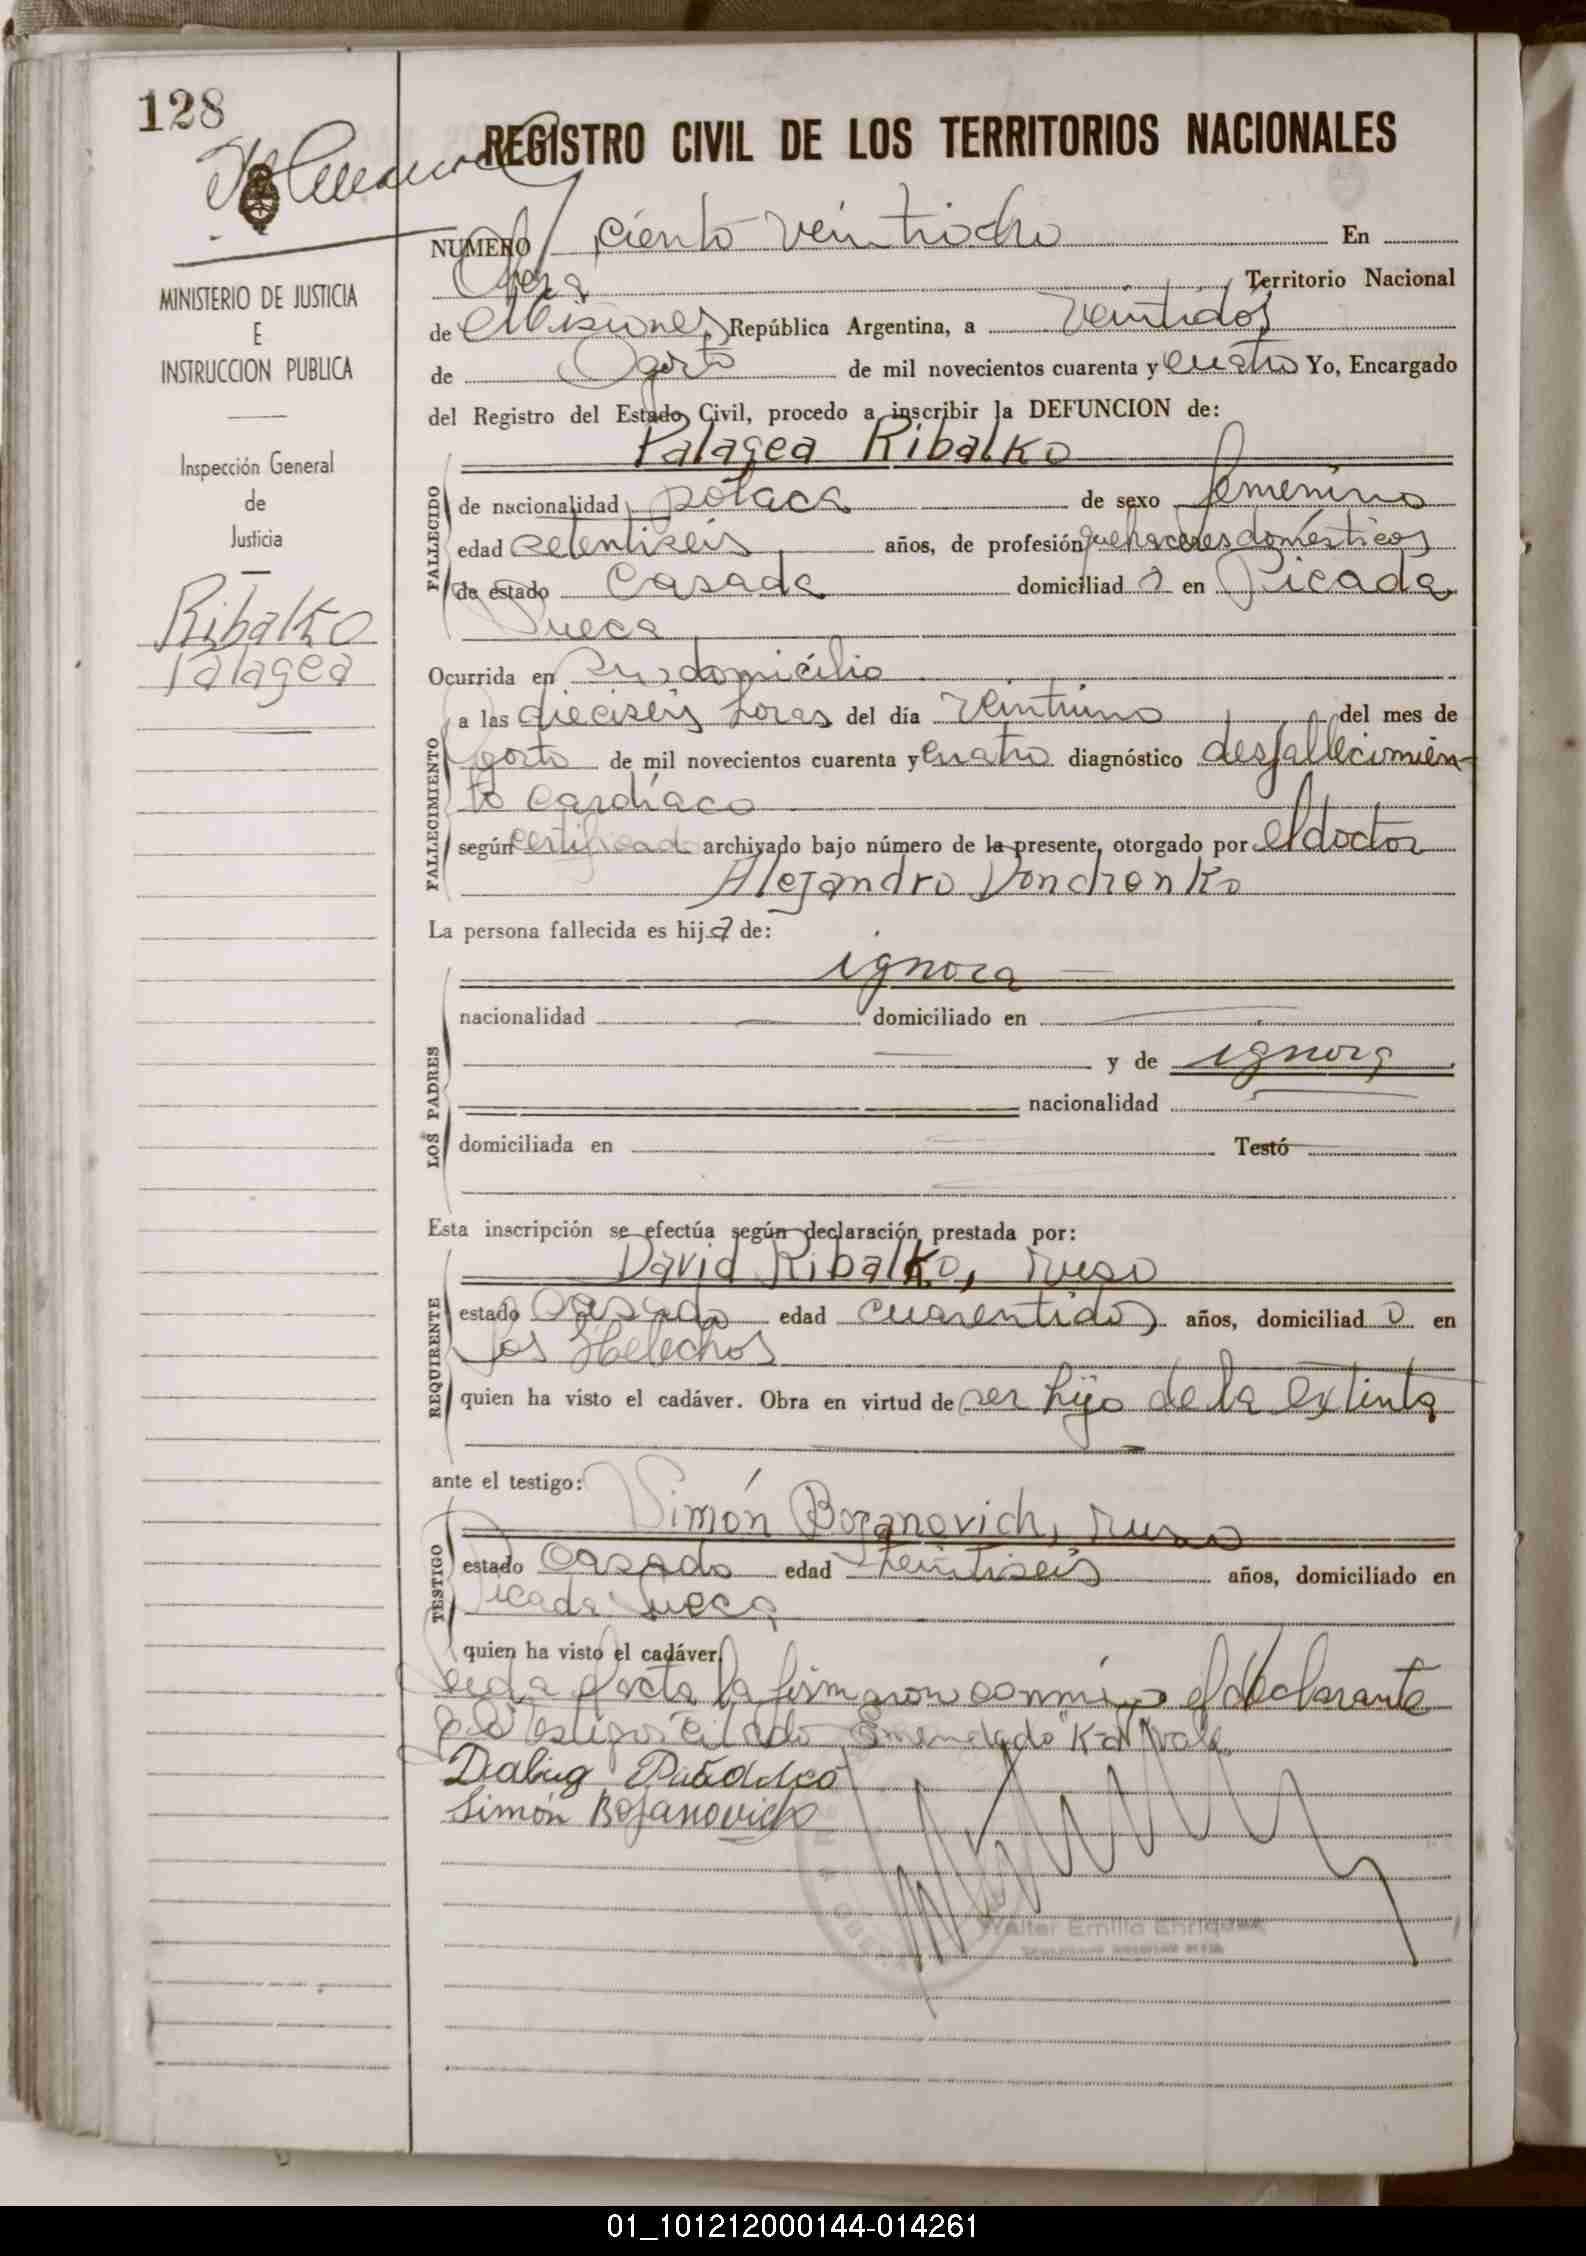 128
REGISTRO CIVIL DE LOS TERRITORIOS NACIONALES
NUMERO ciento veintiocho En
Oberá Territorio Nacional
de Misiones República Argentina, a veintidós
de Agosto de mil novecientos cuarenta y cuatro Yo, Encargado
del Registro del Estado Civil, procedo a inscribir la DEFUNCION de:
Palagea Ribalko
MINISTERIO DE JUSTICIA
E
INSTRUCCION PUBLICA
Inspección General
de
Justicia
Ribalko
Palagea
FALLECIDO
de nacionalidad polaca de sexo femenino
edad setentiseis años, de profesión quehaceres domésticos
de estado casada domiciliad a en Picada
Sueca
Ocurrida en su domicilio
FALLECIMIENTO
a las dieciseis horas del día veintiuno del mes de
Agosto de mil novecientos cuarenta y cuatro diagnóstico desfallecimien-
to cardíaco
según certificado archivado bajo número de la presente, otorgado por el doctor
Alejandro Donchenko
La persona fallecida es hija de:
LOS PADRES
ignora
nacionalidad domiciliado en
y de ignora
nacionalidad
domiciliada en Testó
Esta inscripción se efectúa según declaración prestada por:
REQUIRENTE
David Ribalko, ruso
estado casado edad cuarentidos años, domiciliad o en
Los Helechos
quien ha visto el cadáver. Obra en virtud de ser hijo de la extinta
ante el testigo:
TESTIGO
Simón Bozanovich, ruso
estado casado edad treintiseis años, domiciliado en
Picada Sueca
quien ha visto el cadáver
Leida el acta la firmaron conmigo el declarante
y el testigo citado Emendado "K" vale
Simón Bojanovich
Walter Emilio Enriquez
01_101212000144-014261